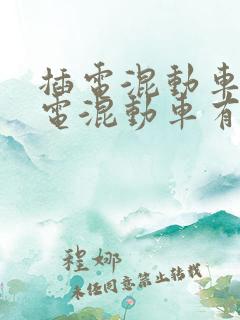 插電混動車
電混動車有
程娜
未任同意禁止转载